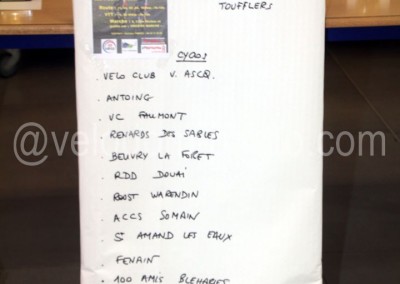 TOUFFLERS
CYCLOS
. VELO CLUB V. ASCQ.
. ANTOING
. VC FALMONT
. RENARDS DES SABLES
. BEUVRY LA FORET
. RDD DOUAI
. ROOST WARENDIN
. ACCS SOMAIN
. ST AMAND LES EAUX
. FENAIN
. 100 AMIS BLEHARIES